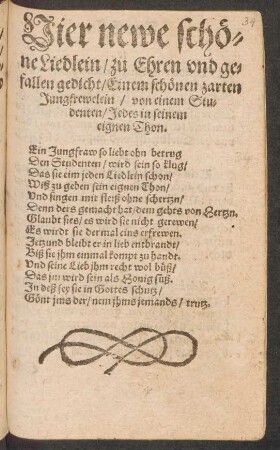 34
Vier newe schö-
ne Liedlein / zů Ehren vnd ge-
fallen gedicht / Einem schönen zarten
Jungfrewelein / von einem Stu-
denten / Jedes in seinem
eignen Thon.
Ein Jungfraw so liebt ohn betrug
Den Studenten / wird sein so klug /
Das sie eim jeden Liedlein schon /
Wiß zu geben sein eignen Thon /
Vnd singen mit fleiß ohne schertzn /
Denn ders gemacht hat / dem gehts von Hertzn.
Glaubt sies / es wird sie nicht gerewen /
Es wirdt sie der mal eins erfrewen.
Jetzund bleibt er in lieb entbrandt /
Biß sie jhm einmal kompt zu handt.
Vnd seine Lieb jhm recht wol büß /
Das jm wird sein als Honig süß.
In deß sey sie in Gottes schutz /
Gönt jms der / nem jhms jemands / trutz.